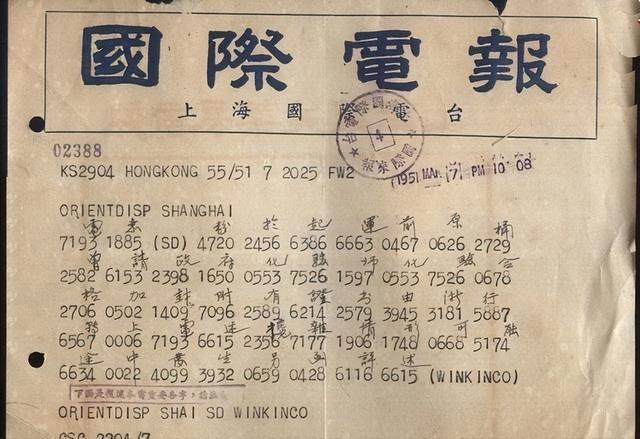 國際電報
上海國際電台
4
02388
KS2904 HONGKONG 55/51 7 2025 FW2
1951 MAR 7 PM 10 08
ORIENTDISP SHANGHAI
電悉 粉於起運前原桶
7193 1885 (SD) 4720 2456 6386 6663 0467 0626 2729
曾請政府化驗師化驗合
2582 6153 2398 1650 0553 7526 1597 0553 7526 0678
格加封附有證書由浙行
2706 0502 1409 7096 2589 6214 2579 3945 3181 5887
上電述攙雜情形可能
6567 0006 7193 6615 2356 7177 1906 1748 0668 5174
途中發生另函詳述
6634 0022 4099 3932 0659 0428 6116 6615 (WINKINCO)
ORIENTDISP SHAI SD WINKINCO